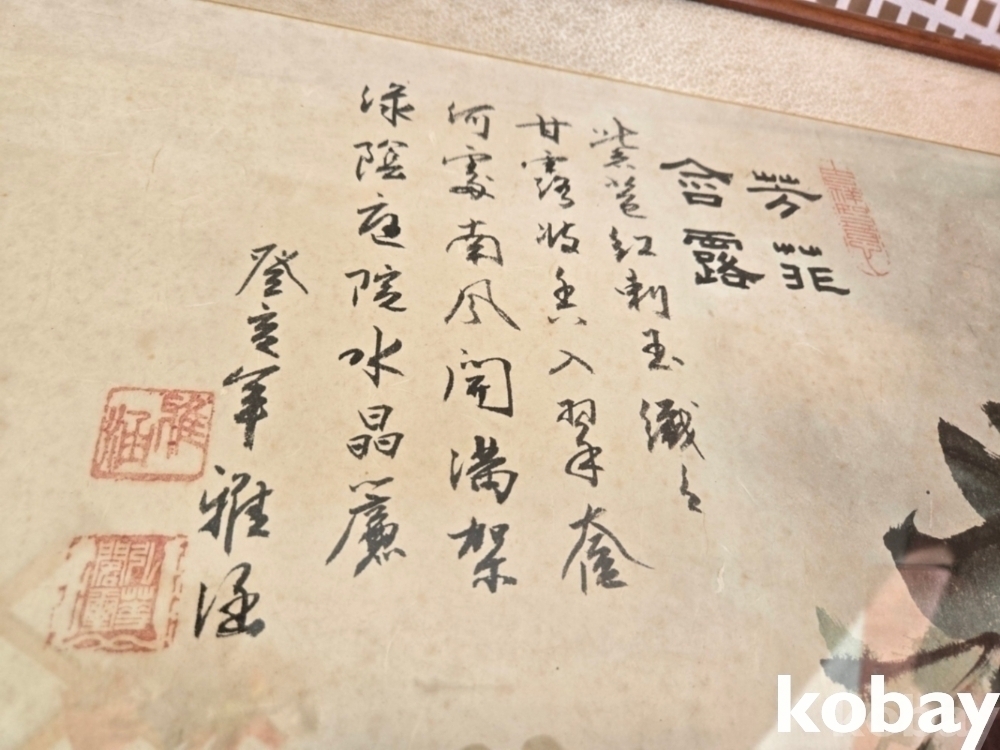 芳菲
含露
紫苞紅刺玉纖纖
甘露香入翠奩
何處南風開滿架
綠陰庭院水晶簾
癸亥年 雅涵
雅涵
kobay